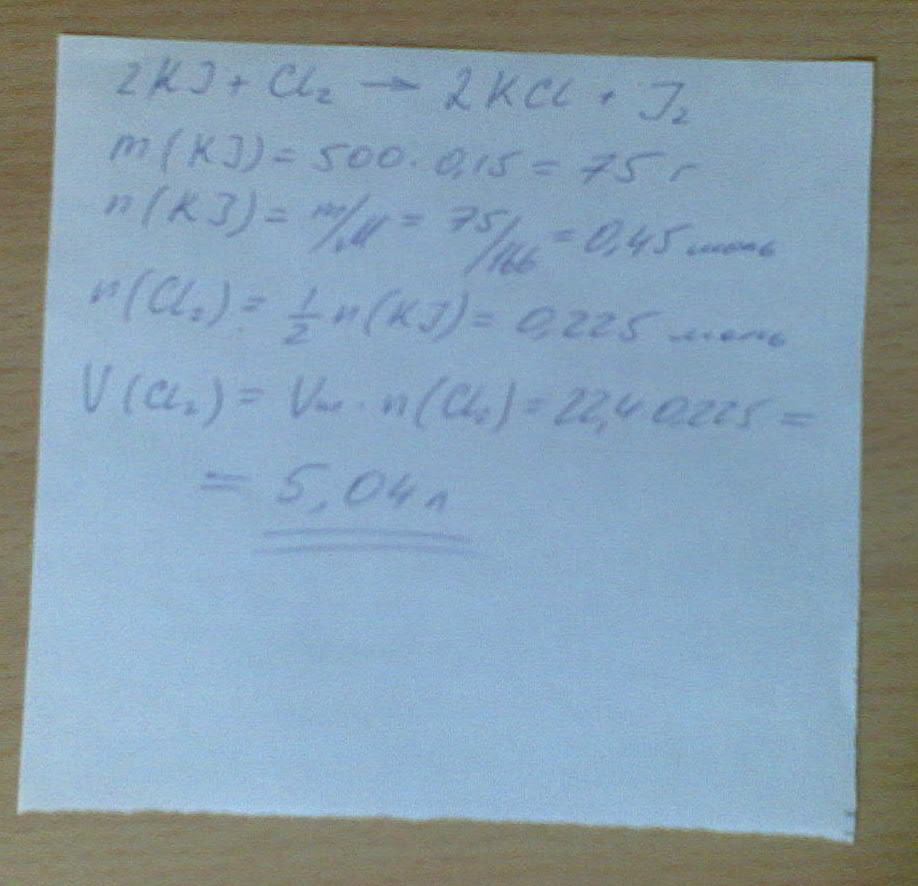 2KJ + Cl₂ → 2KCl + J₂
m(KJ) = 500 · 0,15 = 75 г
n(KJ) = m/M = 75/166 = 0,45 моль
n(Cl₂) = 1/2 n(KJ) = 0,225 моль
V(Cl₂) = Vm · n(Cl₂) = 22,4 0,225 =
= 5,04 л